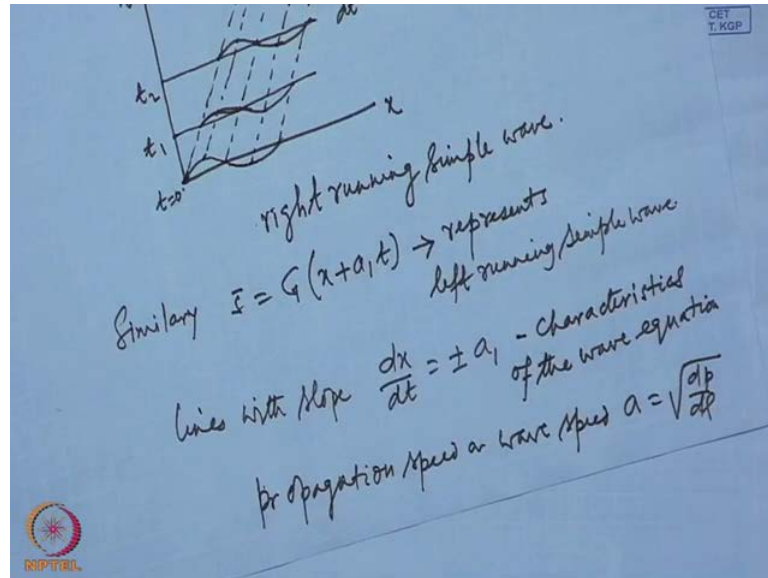 CET
T. KGP
dt
t₂
t₁
t=0
x
right running simple wave.
Similary Φ = G(x+a₁t) → represents
left running simple wave
lines with slope dx/dt = ± a₁ - characteristics
of the wave equation
propagation speed or wave speed a = √(dp/dρ)
NPTEL